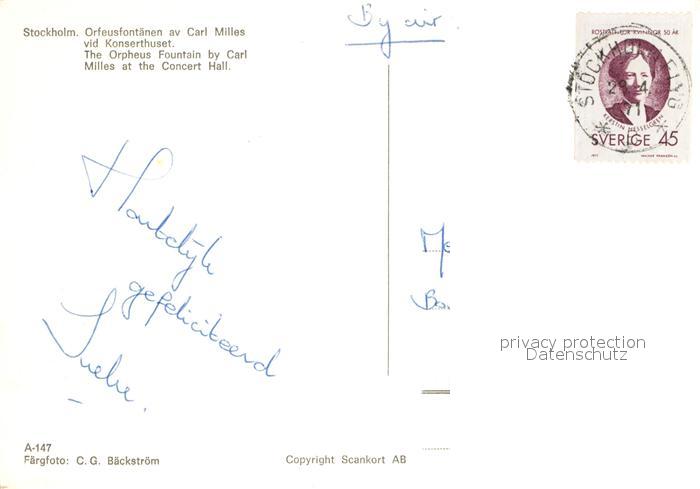 Stockholm. Orfeusfontänen av Carl Milles
vid Konserthuset.
The Orpheus Fountain by Carl
Milles at the Concert Hall.
By air
RÖSTRÄTT FÖR KVINNOR 50 ÅR
STOCKHOLM FLYG
29.4
71
KERSTIN HESSELGREN
SVERIGE 45
1971
Hartelijk
gefeliciteerd
Me
Bo
privacy protection
Datenschutz
A-147
Färgfoto: C. G. Bäckström
Copyright Scankort AB